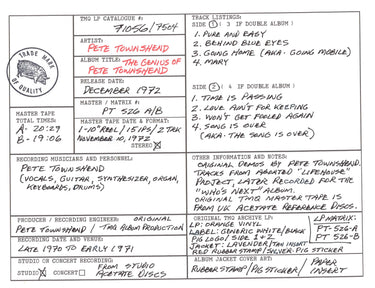 TMG LP CATALOGUE #:
71056/7504
ARTIST:
PETE TOWNSHEND
ALBUM TITLE: THE GENIUS OF
PETE TOWNSHEND
RELEASE DATE:
DECEMBER 1972
MASTER / MATRIX #:
PT 526 A/B
MASTER TAPE DATE & FORMAT:
1-10" REEL / 15 IPS / 2 TRK
NOVEMBER 10, 1972
STEREO X
TRADE MARK
OF QUALITY
MASTER TAPE
TOTAL TIMES:
A- 20:29
B- 19:06
TRACK LISTINGS:
SIDE 1 ( 3 IF DOUBLE ALBUM )
1. PURE AND EASY
2. BEHIND BLUE EYES
3. GOING HOME (AKA - GOING MOBILE)
4. MARY
SIDE 2 ( 4 IF DOUBLE ALBUM )
1. TIME IS PASSING
2. LOVE AIN'T FOR KEEPING
3. WON'T GET FOOLED AGAIN
4. SONG IS OVER
(AKA - THE SONG IS OVER)
RECORDING MUSICIANS AND PERSONNEL:
PETE TOWNSHEND
(VOCALS, GUITAR, SYNTHESIZER, ORGAN,
KEYBOARDS, DRUMS)
OTHER INFORMATION AND NOTES:
ORIGINAL DEMOS BY PETE TOWNSHEND.
TRACKS FROM ABORTED "LIFEHOUSE"
PROJECT, LATER RECORDED FOR THE
"WHO'S NEXT" ALBUM.
ORIGINAL TMQ MASTER TAPE IS
FROM UK ACETATE REFERENCE DISCS.
PRODUCER / RECORDING ENGINEER: ORIGINAL
PETE TOWNSHEND / TMQ ALBUM PRODUCTION
RECORDING DATE AND VENUE:
LATE 1970 TO EARLY 1971
STUDIO OR CONCERT RECORDING:
STUDIO X CONCERT
FROM STUDIO
ACETATE DISCS
ORIGINAL TMG ARCHIVE LP:
LP: ORANGE VINYL
LABEL: GENERIC WHITE/BLACK
PIG LOGO / SIDE 1 + 2
JACKET: LAVENDER/TAN INSERT
RED RUBBER STAMP/SILVER PIG STICKER
LP MATRIX:
PT-526-A
PT-526-B
ALBUM JACKET COVER ART:
RUBBER STAMP / PIG STICKER / PAPER
INSERT